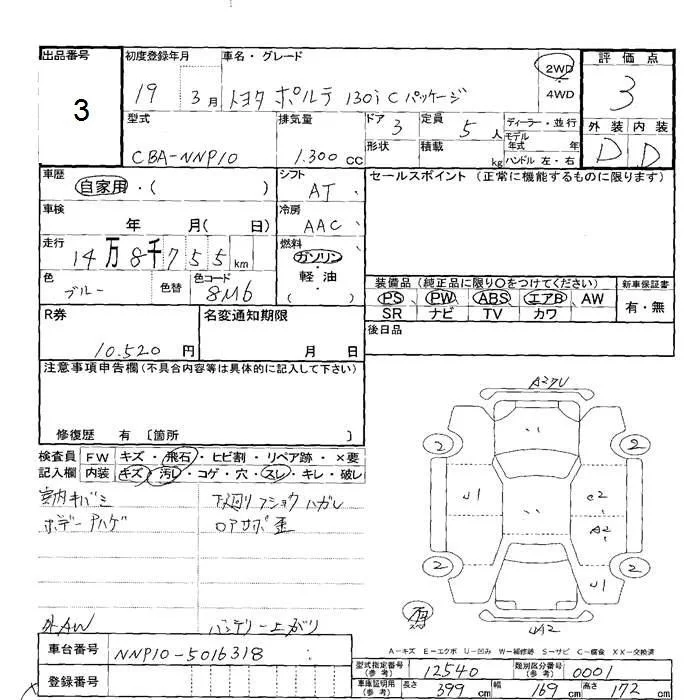 出品番号 初度登録年月 車名・グレード 2WD 評価点
3 19 3月 トヨタ ポルテ 130i Cパッケージ 4WD 3
型式 排気量 ドア 3 定員 5人 ディーラー・並行 外装 内装
CBA-NNP10 1.300cc 形状 積載 kg モデル年式 年 D D
ハンドル 左・右
車歴 自家用・( ) シフト AT セールスポイント (正常に機能するものに限ります)
車検 年 月( 日) 冷房 AAC
走行 14万8千755km 燃料 ガソリン・軽油 ( )
色 ブルー 色替 色コード 8M6
装備品 (純正品に限り○をつけてください) 新車保証書
PS PW ABS エアB AW 有・無
SR ナビ TV カワ
R券 名変通知期限 後日品
10.520円 月 日
注意事項申告欄(不具合内容等は具体的に記入して下さい)
修復歴 有 〔箇所 〕
A27U
検査員 FW キズ・飛石・ヒビ割・リペア跡・×要
記入欄 内装 キズ・汚レ・コゲ・穴・スレ・キレ・破レ
2 2
室内キバミ 下廻リフショウハガレ
U1 e2
ロアサポ歪
A2
2 2
U1
外AW バッテリー上がり
UA2
A-キズ E-エクボ U-凹み W-補修跡 S-サビ C-腐食 XX-交換済
車台番号 NNP10-5016318
型式指定番号(参考) 12540 類別区分番号(参考) 0001
登録番号
車庫証明用(参考) 長さ 399cm 幅 169cm 高さ 172cm